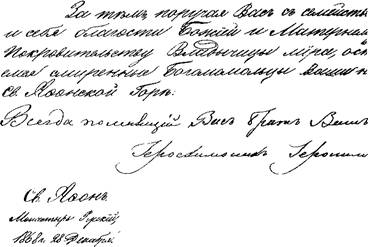 За тѣмъ, поручая Васъ съ семействѣ
и себя благости Божіей и Матернем
Покровительству Владычицы міра, ост
смиренные Богомольцы Ваши н
Св. Аѳонской Горѣ.
Всегда помнящій Васъ братъ Вашъ
Іеросхимонахъ Іеронимъ
Св. Аѳонъ.
Монастырь Русскій,
1868 г. 28 Декабря